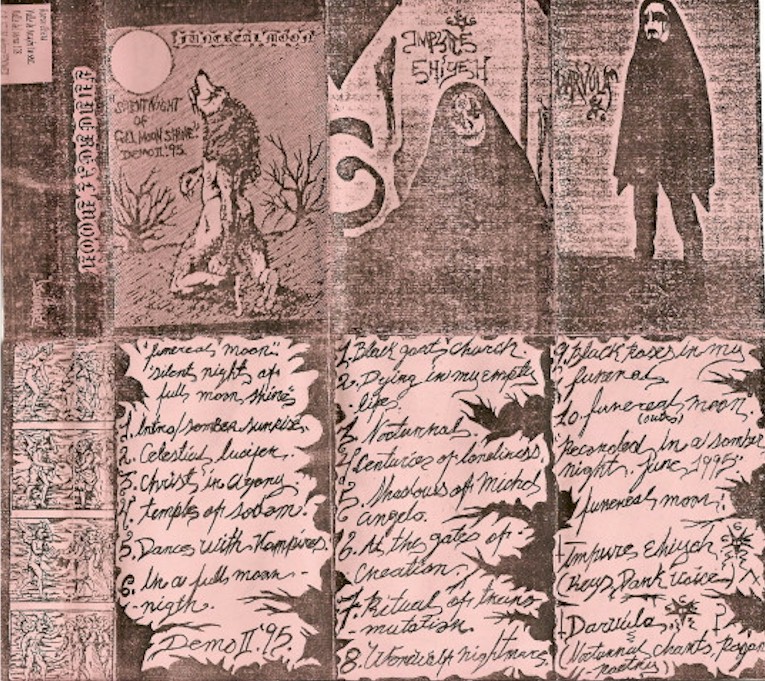 FUNEREAL MOON
FUNEREAL MOON
"SILENT NIGHT
OF
FULL MOON SHINE"
DEMO II '95.
IMPURE
EHIYEH
DARVULA
"funereal moon"
"silent night of
full moon shine"
1. Intro/somber sunrise.
2. Celestial lucifer.
3. Christ in agony.
4. temple of sodom.
5. Dances with Vampires.
6. In a full moon -
- nigth.
Demo II '95.
1. Black goat church.
2. Dying in my empty
life.
3. Nocturnal.
4. Centuries of loneliness
5. Shadows of Michel
angelo.
6. At the gates of -
- creation.
7. Ritual of trans
- mutation.
8. Werewolf nightmare.
9. Black roses in my
funeral.
10. funereal moon.
(outro)
Recorded in a somber
night, june, 1995.
funereal moon:
Impure Ehiyeh
(Keys, Dark voice)
Darvula
(Nocturnal chants, Pagan
- poetry)